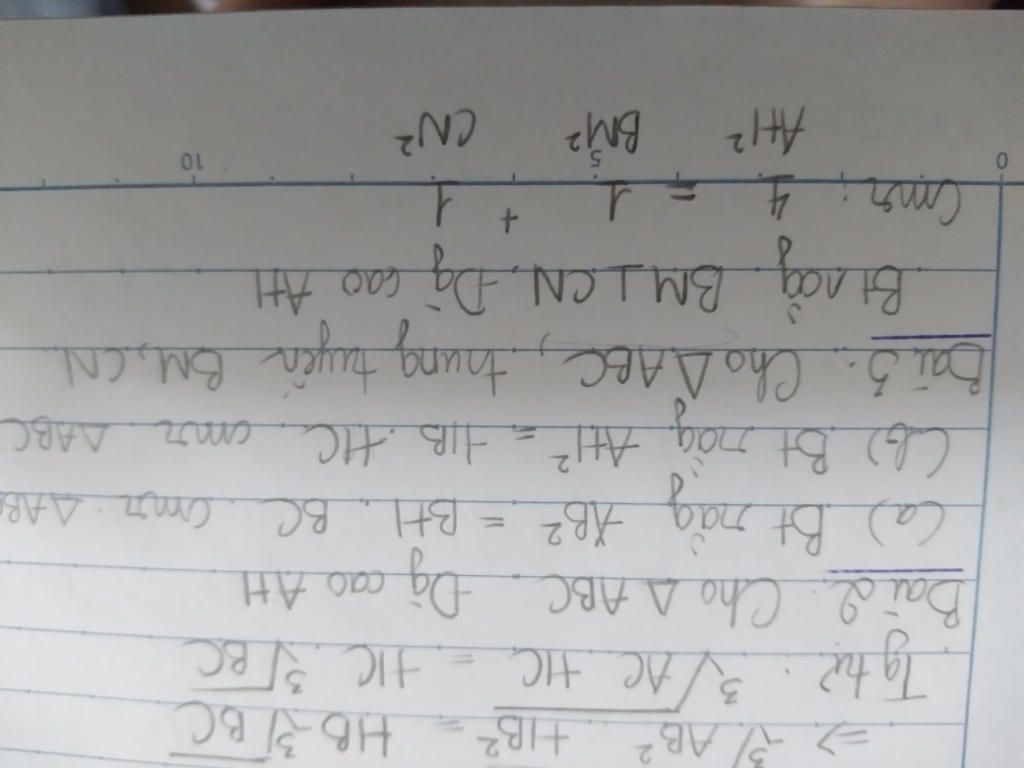 => ∛AB² . HB² = HB . ∛BC
Tg tự : ∛AC . HC = HC . ∛BC
Bài 2: Cho Δ ABC . Dg cao AH
(a) Bt rằng AB² = BH . BC . cmr ΔABC
(b) Bt rằng AH² = HB . HC . cmr ΔABC
Bài 3: Cho Δ ABC, trung tuyến BM, CN
Bt rằng BM ⊥ CN. Dg cao AH
Cmr: 4/AH² = 1/BM² + 1/CN²
0 5 10